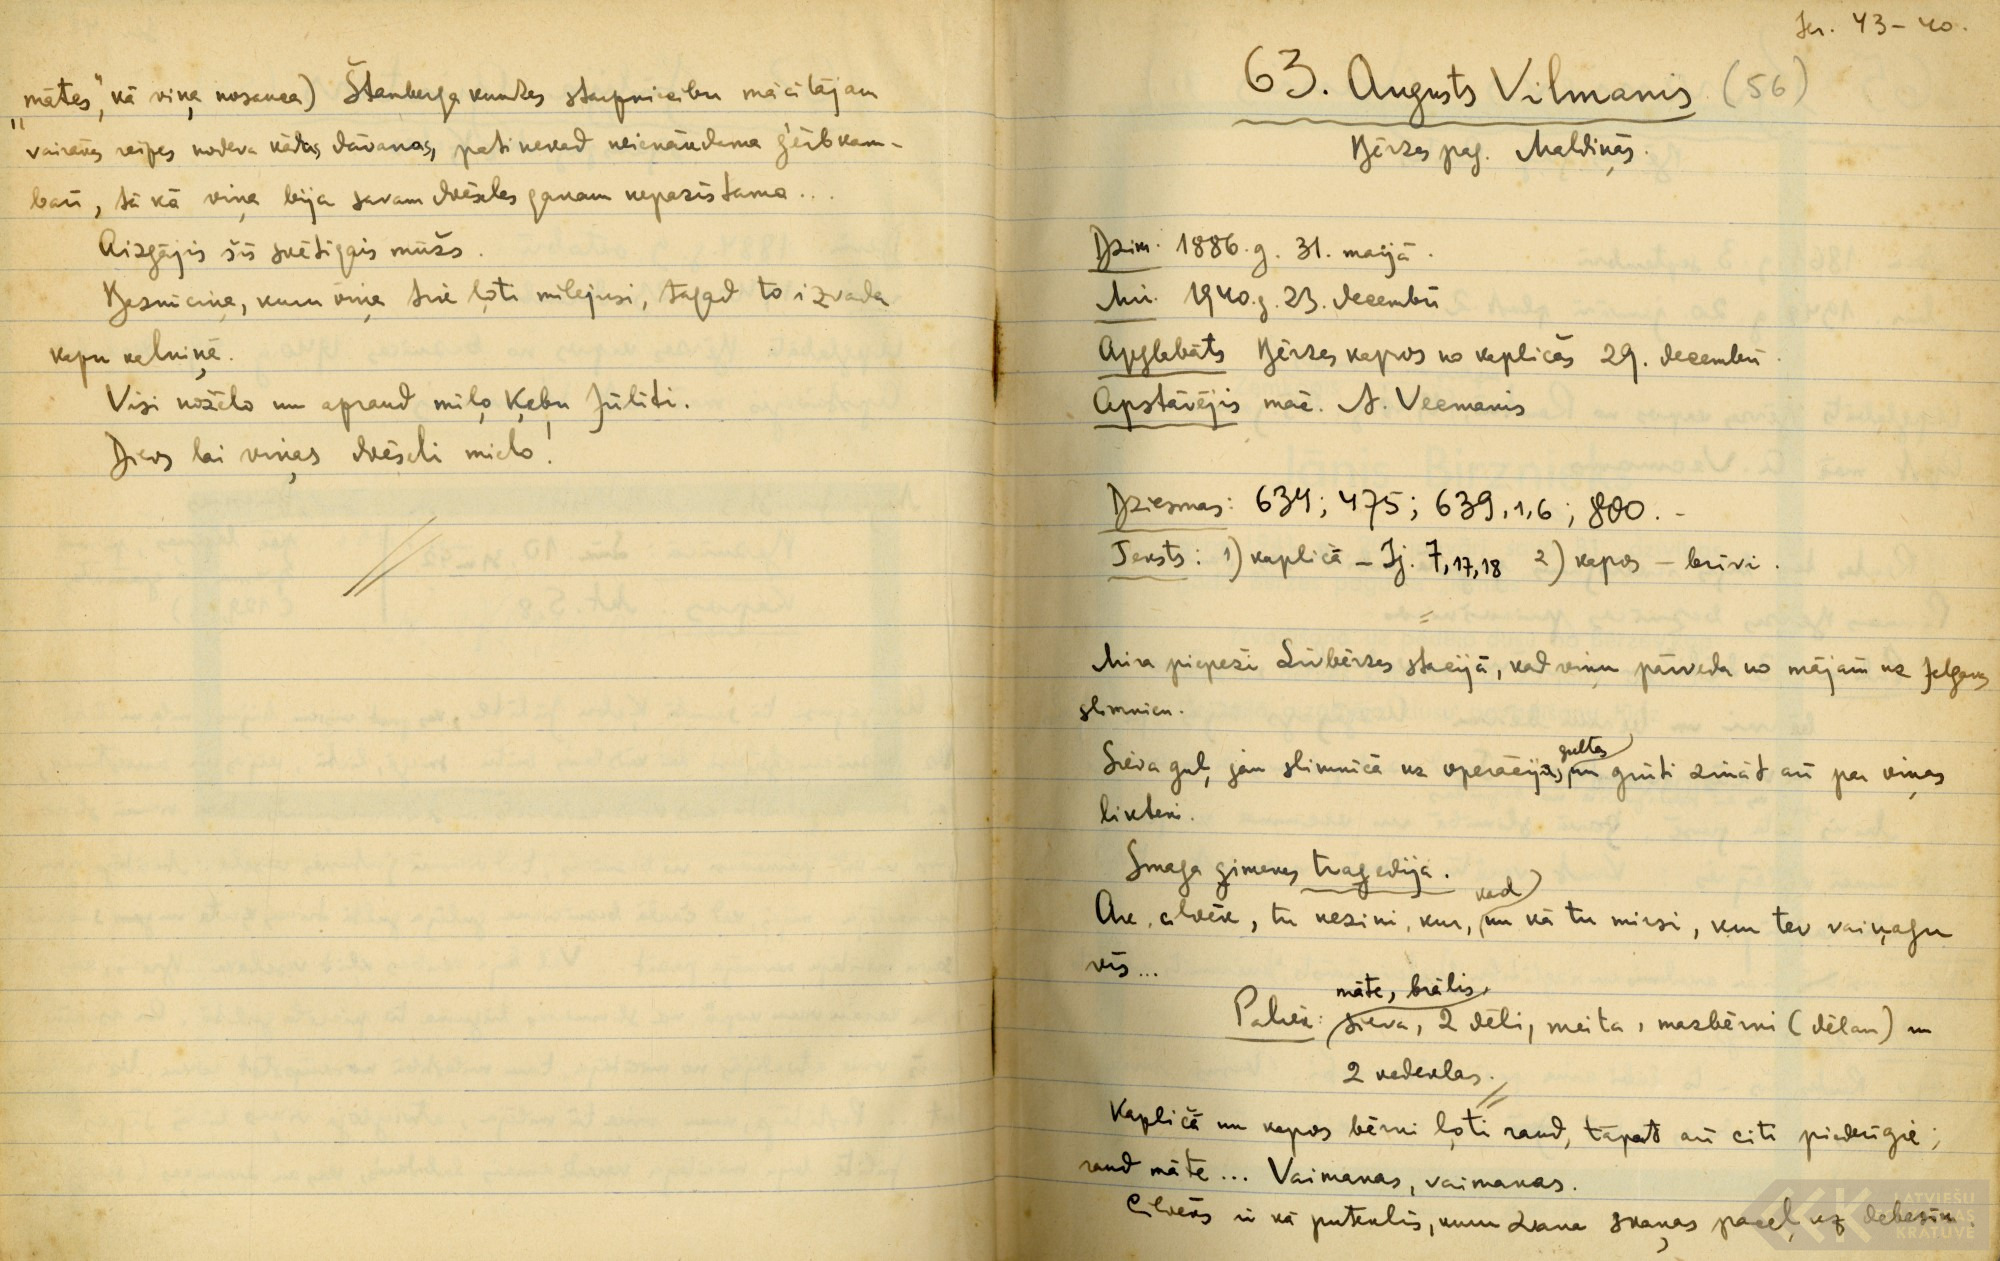 „mātes”, kā viņa nosauca) Štamberga kundzes starpniecību mācītājam
vairākas reizes nodeva kādas dāvanas, pati nekad neienākdama ģērbkam-
barī, tā kā viņa bija savam dvēseles ganam nepazīstama...
Aizgājis šis svētīgais mūžs.
Baznīciņa, kuru viņa tik ļoti mīlējusi, tagad to izvada
kapu kalniņā.
Visi nožēlo un apraud mīļo Ķebu Jūlīti.
Dievs lai viņas dvēseli mielo!
Ier. 43-40.
63. Augusts Vilmanis (56)
Bērzes pag. Maldiņās.
Dzim. 1886.g. 31. maijā.
Mir. 1940.g. 23. decembrī
Apglabāts Bērzes kapos no kapličas 29. decembrī.
Apstāvējis māc. A. Vecmanis
Dziesmas: 634; 475; 639,1,6; 800.-
Teksts: 1) kapličā – Ij. 7,17,18 2) kapos – brīvi.
Mira piepeši Līvbērzes stacijā, kad viņu pārveda no mājām uz Jelgavas
slimnīcu.
gultas
Sieva guļ jau slimnīcā uz operācijas un grūti zināt arī par viņas
likteni.
Smaga ģimenes traģēdija.
kad
Ak, cilvēk, tu nezini, kur, un kā tu mirsi, kur tev vaiņagu
vīs...
māte, brālis,
Paliek: sieva, 2 dēli, meita, mazbērni (dēlam) un
2 vedeklas.
Kapličā un kapos bērni ļoti raud, tāpat arī citi piederīgie;
raud māte... Vaimanas, vaimanas.
Cilvēks ir kā puteklis, kuru zvana skaņas paceļ uz debesīm.
LATVIEŠU
KRĀTUVE